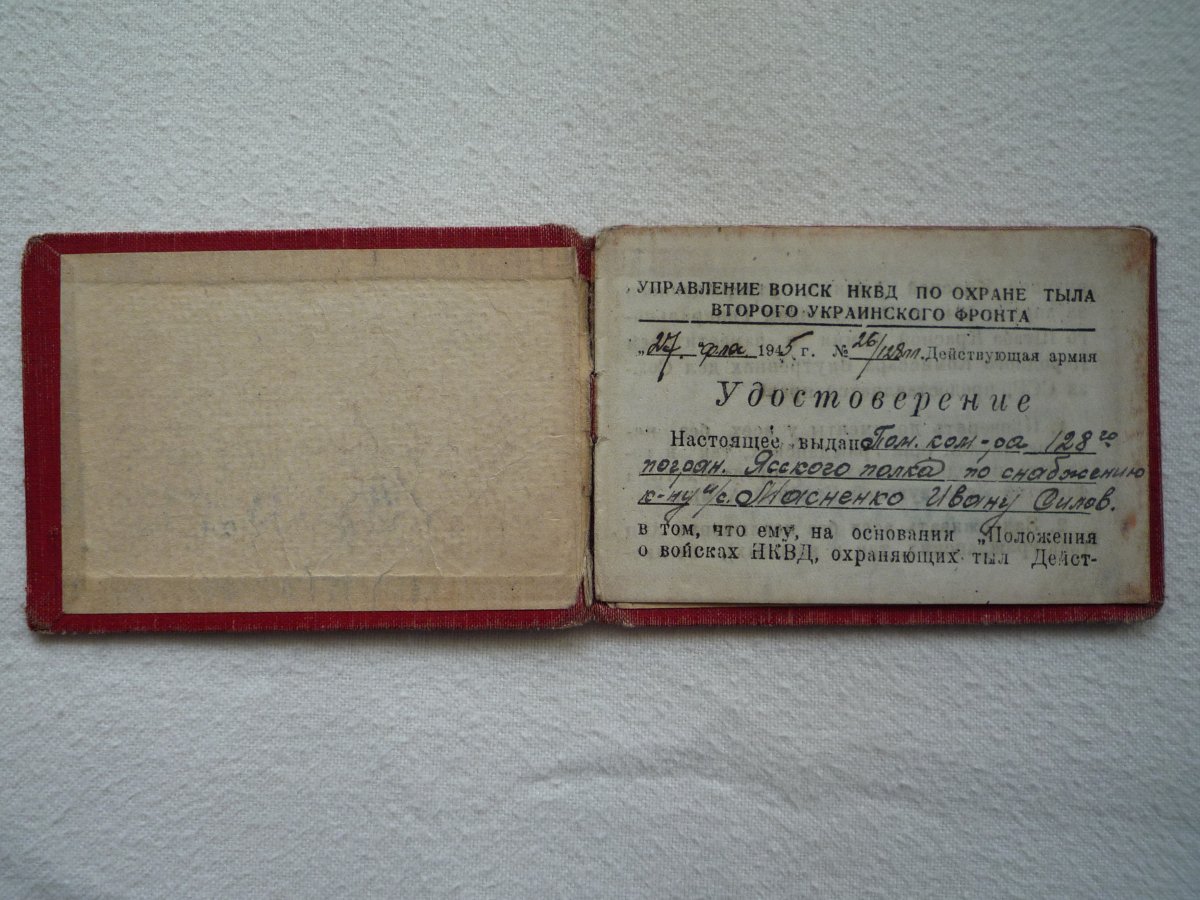 УПРАВЛЕНИЕ ВОЙСК НКВД ПО ОХРАНЕ ТЫЛА
ВТОРОГО УКРАИНСКОГО ФРОНТА
„27. 1945 г. № 26/128 Действующая армия
Удостоверение
Настоящее выдано Пом. ком-ра 128го
погран. Ясского полка по снабжению
к-ну и/с. Масненко Ивану Силов.
в том, что ему, на основании „Положения
о войсках НКВД, охраняющих тыл Дейст-